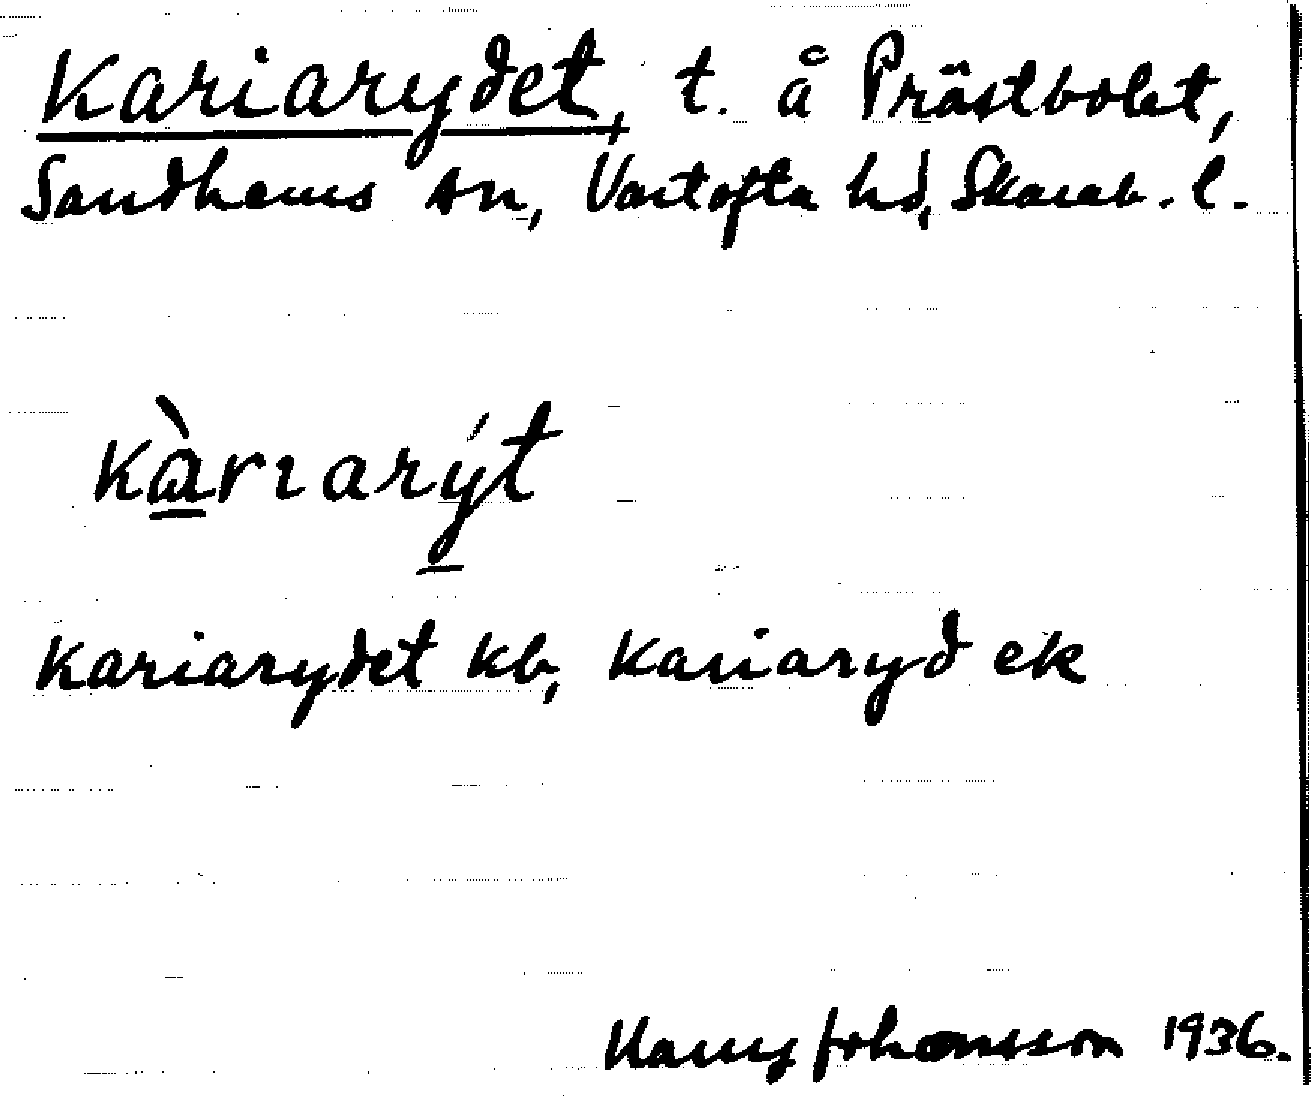 Kariarydet, t. å Prästbolet,
Sandhems sn, Vartofta hd, Skarab. l.
kàrıarýt
Kariarydet kb, Kariaryd ek
Harry Johansson 1936.